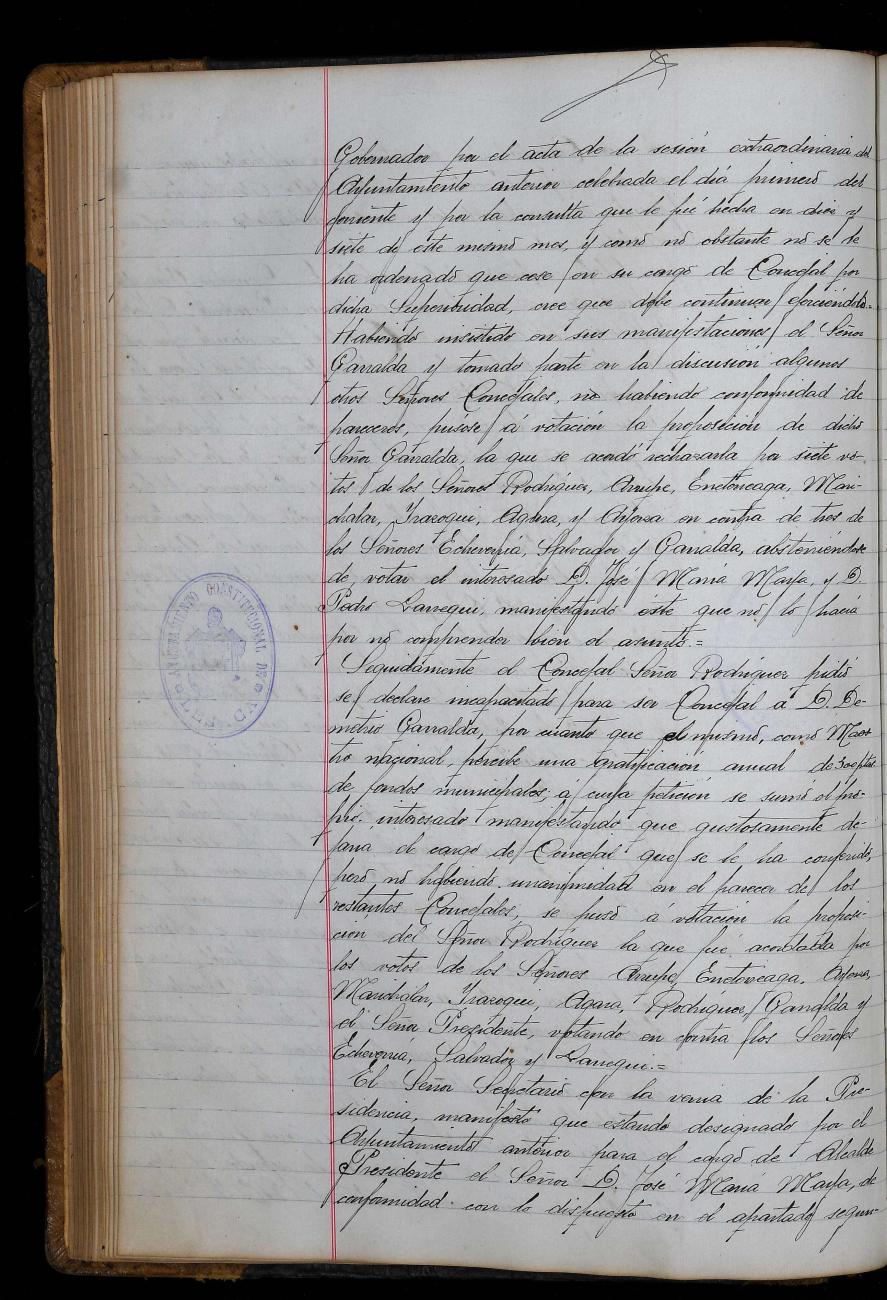 Gobernador por el acta de la sesión extraordinaria del
Ayuntamiento anterior celebrada el día primero del
corriente y por la consulta que le fué hecha en diez y
siete de este mismo mes, y como no obstante no se le
ha ordenado que cese en su cargo de Concejal por
dicha Superioridad, cree que debe continuar ejerciéndolo.=
Habiendo insistido en sus manifestaciones el Señor
Garralda y tomado parte en la discusión algunos
otros Señores Concejales, no habiendo conformidad de
pareceres, púsose á votación la proposición de dicho
Señor Garralda, la que se acordó rechazarla por siete vo-
tos de los Señores Rodríguez, Arrupe, Enetoveaga, Mari-
chalar, Yraroqui, Agara, y Ayerza en contra de tres de
los Señores Echeverría, Salvador y Garralda, absteniéndose
de votar el interesado D. José María Maya, y D.
Pedro Larregui, manifestando éste que no lo hacía
por no comprender bien el asunto.=
Seguidamente el Concejal Señor Rodríguez pidió
se declare incapacitado para ser Concejal á D. De-
metrio Garralda, por cuanto que el mismo, como Maes-
tro nacional, percibe una gratificación anual de 300 ptas.
de fondos municipales; á cuya petición se sumó el pro-
pio interesado manifestando que gustosamente de-
jaría el cargo de Concejal que se le ha conferido,
pero no habiendo unanimidad en el parecer de los
restantes Concejales, se puso á votación la proposi-
ción del Señor Rodríguez la que fué acordada por
los votos de los Señores Arrupe, Enetoveaga, Ayerza,
Marichalar, Yraroqui, Agara, Rodríguez, Garralda y
el Señor Presidente, votando en contra los Señores
Echeverría, Salvador y Larregui.=
El Señor Secretario con la venia de la Pre-
sidencia, manifestó que estando designado por el
Ayuntamiento anterior para el cargo de Alcalde
Presidente el Señor D. José María Maya, de
conformidad con lo dispuesto en el apartado segun-
AYUNTAMIENTO CONSTITUCIONAL DE